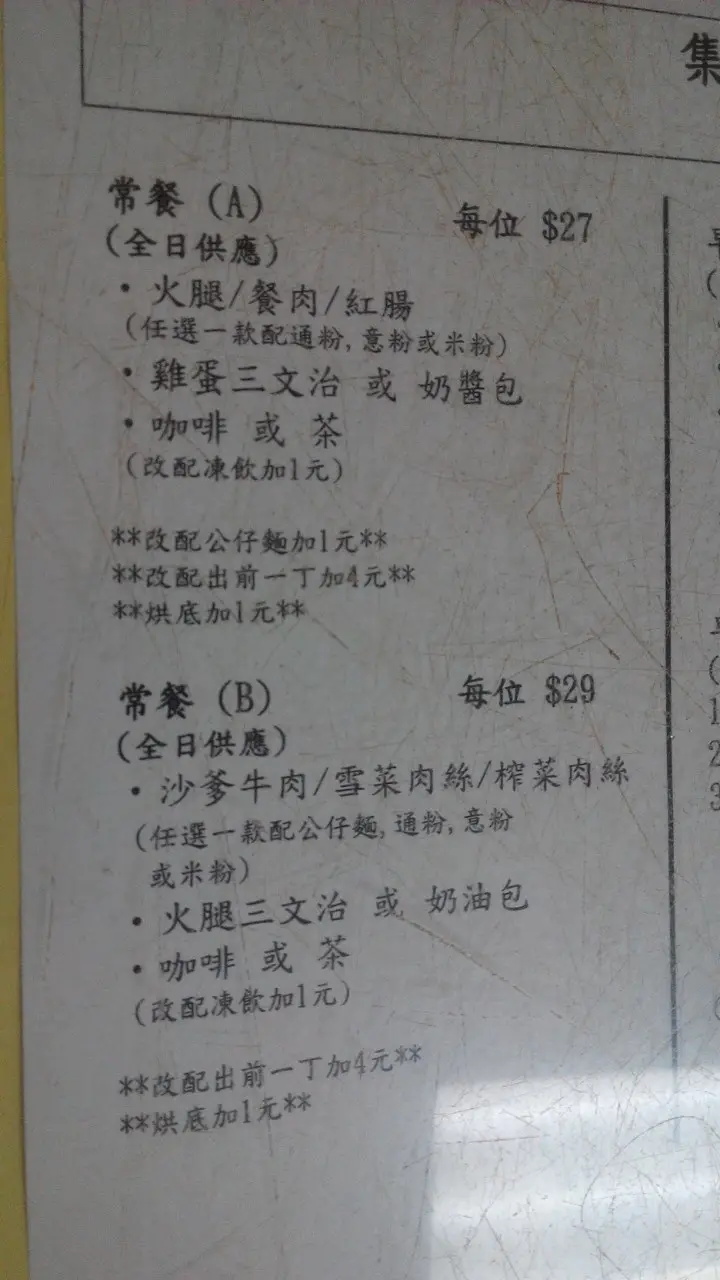 集
常餐 (A) 每位 $27
(全日供應)
• 火腿/餐肉/紅腸
(任選一款配通粉, 意粉或米粉)
• 雞蛋三文治 或 奶醬包
• 咖啡 或 茶
(改配凍飲加1元)
**改配公仔麵加1元**
**改配出前一丁加4元**
**烘底加1元**
常餐 (B) 每位 $29
(全日供應)
• 沙爹牛肉/雪菜肉絲/榨菜肉絲
(任選一款配公仔麵, 通粉, 意粉
或米粉)
• 火腿三文治 或 奶油包
• 咖啡 或 茶
(改配凍飲加1元)
**改配出前一丁加4元**
**烘底加1元**
1
2
3